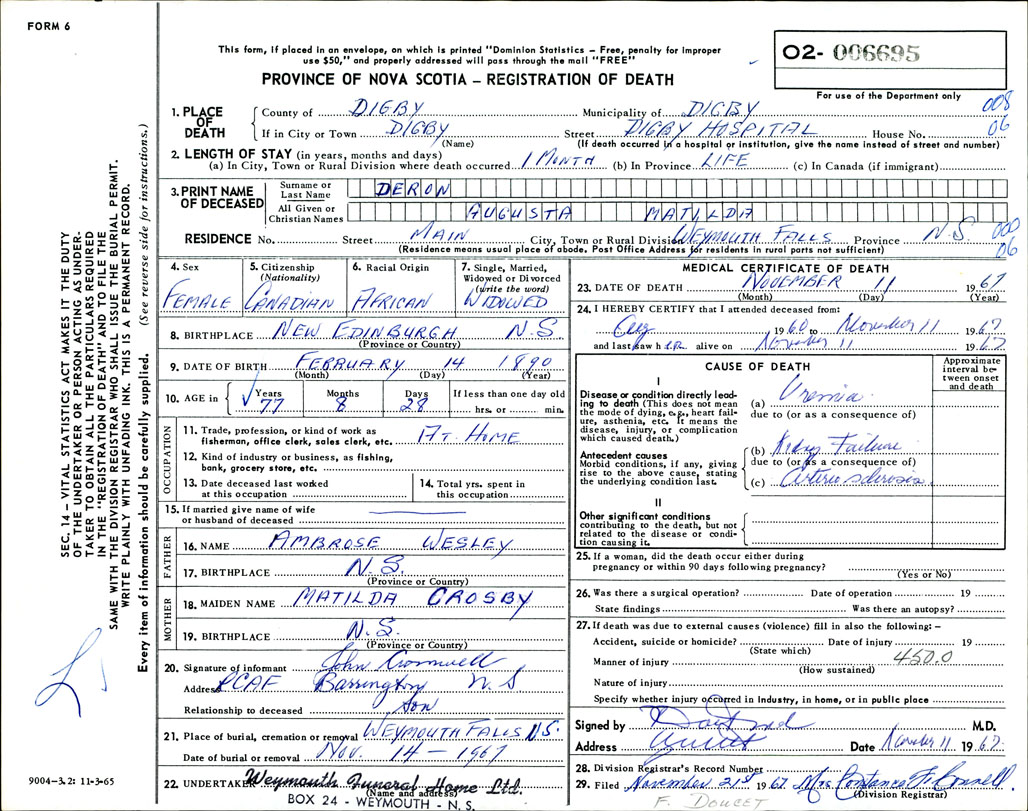 FORM 6
This form, if placed in an envelope, on which is printed "Dominion Statistics – Free, penalty for improper
use $50," and properly addressed will pass through the mail "FREE"
PROVINCE OF NOVA SCOTIA – REGISTRATION OF DEATH
02- 006695
For use of the Department only
008
06
1. PLACE OF DEATH
County of DIGBY Municipality of DIGBY
If in City or Town DIGBY Street DIGBY HOSPITAL House No.
(Name) (If death occurred in a hospital or institution, give the name instead of street and number)
2. LENGTH OF STAY (in years, months and days)
(a) In City, Town or Rural Division where death occurred 1 MONTH (b) In Province LIFE (c) In Canada (if immigrant)
3. PRINT NAME OF DECEASED
Surname or Last Name DERON
All Given or Christian Names AUGUSTA MATILDA
RESIDENCE No. Street MAIN City, Town or Rural Division WEYMOUTH FALLS Province N.S. 000
06
(Residence means usual place of abode. Post Office Address for residents in rural parts not sufficient)
4. Sex
FEMALE
5. Citizenship
(Nationality)
CANADIAN
6. Racial Origin
AFRICAN
7. Single, Married,
Widowed or Divorced
(write the word)
WIDOWED
8. BIRTHPLACE NEW EDINBURGH N.S
(Province or Country)
9. DATE OF BIRTH FEBRUARY 14 1890
(Month) (Day) (Year)
10. AGE in
Years 77
Months 8
Days 28
If less than one day old
hrs. or min.
OCCUPATION
11. Trade, profession, or kind of work as
fisherman, office clerk, sales clerk, etc. AT. HOME
12. Kind of industry or business, as fishing,
bank, grocery store, etc.
13. Date deceased last worked
at this occupation
14. Total yrs. spent in
this occupation
15. If married give name of wife
or husband of deceased
FATHER
16. NAME AMBROSE WESLEY
17. BIRTHPLACE N.S.
(Province or Country)
MOTHER
18. MAIDEN NAME MATILDA CROSBY
19. BIRTHPLACE N.S.
(Province or Country)
20. Signature of informant John Cromwell
Address RCAF Barrington N.S
Relationship to deceased Son
21. Place of burial, cremation or removal WEYMOUTH FALLS N.S.
Date of burial or removal Nov. 14 – 1967
22. UNDERTAKER Weymouth Funeral Home Ltd.
(Name and address)
BOX 24 - WEYMOUTH - N.S.
MEDICAL CERTIFICATE OF DEATH
23. DATE OF DEATH NOVEMBER 11 1967
(Month) (Day) (Year)
24. I HEREBY CERTIFY that I attended deceased from:
Aug 1960 to November 11 1967
and last saw her alive on November 11 1967
CAUSE OF DEATH
Approximate interval between onset and death
I
Disease or condition directly leading
to death (This does not mean
the mode of dying, e.g., heart failure,
asthenia, etc. It means the
disease, injury, or complication
which caused death.)
(a) Uremia
due to (or as a consequence of)
Antecedent causes
Morbid conditions, if any, giving
rise to the above cause, stating
the underlying condition last.
(b) Kidney Failure
due to (or as a consequence of)
(c) Arterio sclerosis
II
Other significant conditions
contributing to the death, but not
related to the disease or condition
causing it.
25. If a woman, did the death occur either during
pregnancy or within 90 days following pregnancy?
(Yes or No)
26. Was there a surgical operation? Date of operation 19
State findings Was there an autopsy?
27. If death was due to external causes (violence) fill in also the following: –
Accident, suicide or homicide? Date of injury 19
(State which)
450.0
Manner of injury
(How sustained)
Nature of injury
Specify whether injury occurred in industry, in home, or in public place
Signed by M.D.
Address Date November 11 1967
28. Division Registrar's Record Number
29. Filed November 21st 1967 Mrs. Constance F.
(Division Registrar)
F. DOUCET
SEC. 14 – VITAL STATISTICS ACT MAKES IT THE DUTY
OF THE UNDERTAKER OR PERSON ACTING AS UNDERTAKER
TO OBTAIN ALL THE PARTICULARS REQUIRED
IN THE "REGISTRATION OF DEATH" AND TO FILE THE
SAME WITH THE DIVISION REGISTRAR WHO SHALL ISSUE THE BURIAL PERMIT.
WRITE PLAINLY WITH UNFADING INK. THIS IS A PERMANENT RECORD.
Every item of information should be carefully supplied. (See reverse side for instructions.)
9004-3.2: 11-3-65